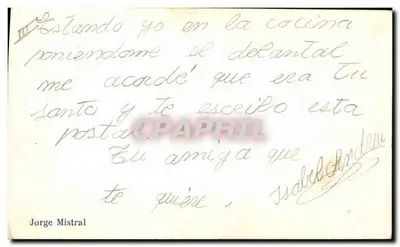 Estando yo en la cocina
poniendome el delantal
me acordé que era tu
santo y te escribo esta
postal
CPAPHIL.COM
Tu amiga que
te quiere.
Isabel
Jorge Mistral